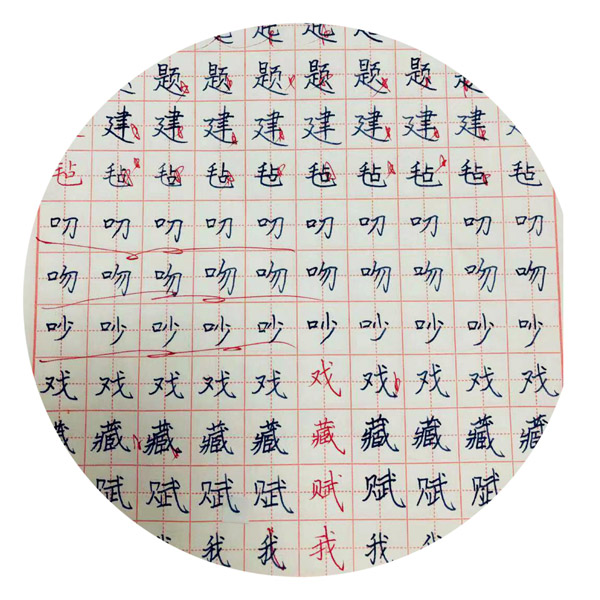 题 题 题 题 题 题
建 建 建 建 建 建 建 建
毡 毡 毡 毡 毡 毡 毡 毡 毡 毡
叨 叨 叨 叨 叨 叨 叨 叨 叨 叨
吻 吻 吻 吻 吻 吻 吻 吻 吻 吻
吵 吵 吵 吵 吵 吵 吵 吵 吵 吵
戏 戏 戏 戏 戏 戏 戏 戏 戏 戏
藏 藏 藏 藏 藏 藏 藏 藏 藏
赋 赋 赋 赋 赋 赋 赋 赋
我 我 我 我